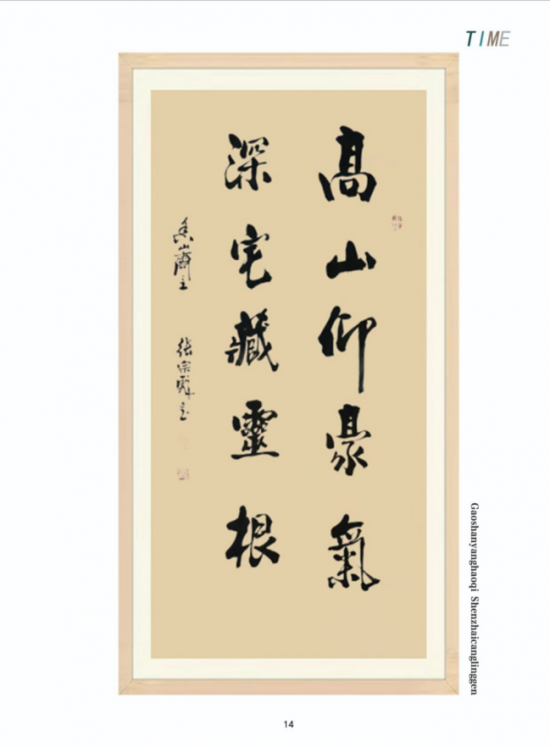 TIME
高山仰豪氣
深宅藏靈根
張宗
Gaoshanyanghaoqi Shenzhaicanglinggen
14